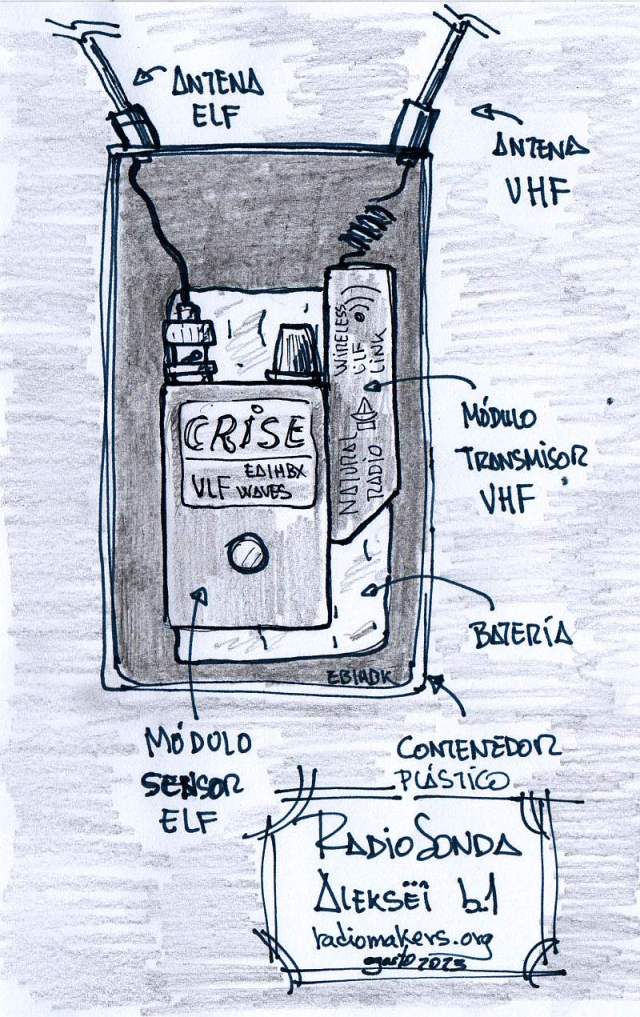 ANTENA
ELF
ANTENA
VHF
WIRELESS
LINK
NATURAL
RADIO
CRiSE
VLF
WAVES
MÓDULO
TRANSMISOR
VHF
BATERÍA
MÓDULO
SENSOR
ELF
CONTENEDOR
PLÁSTICO
RADiO SONDA
ALEKSËÏ b.1
radiomakers.org
agosto 2023